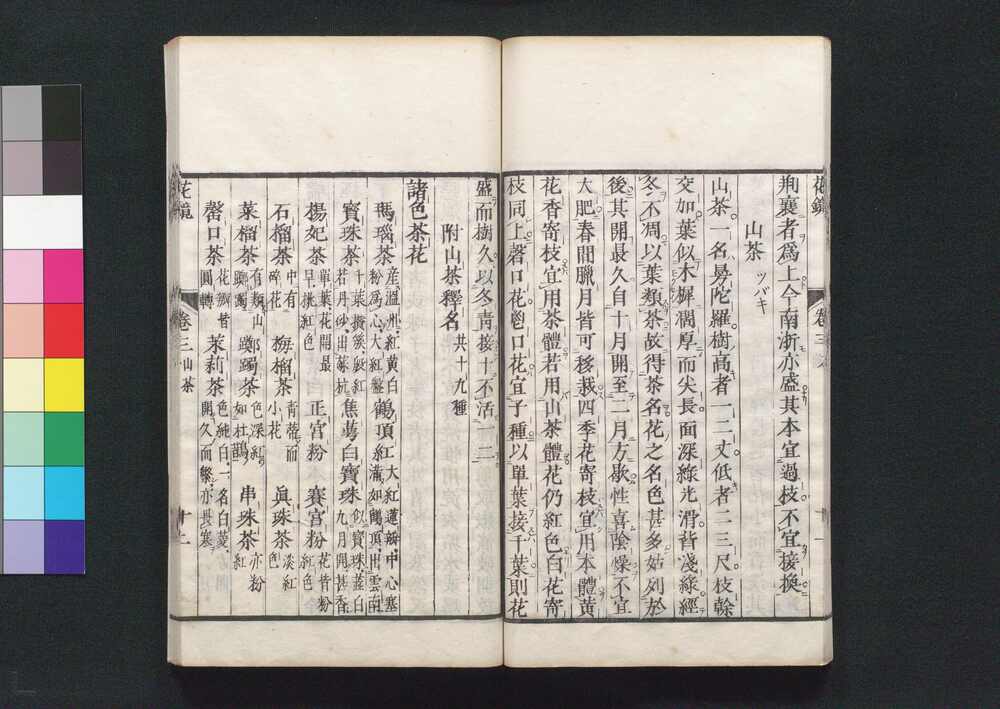 花鏡 卷三
荆襄者爲上今南浙亦盛其本宜過枝不宜接換
山茶 ツバキ
山茶一名曼陀羅樹高者一二丈低者二三尺枝幹
交加葉似木樨濶厚而尖長面深綠光滑背淺綠經
冬不凋以葉類茶故得茶名花之名色甚多姑列於
後其開最久自十月開至二月方歇性喜陰燥不宜
大肥春間臘月皆可移栽四季花寄枝宜用本體黄
花香寄枝宜用茶體若用山茶體花仍紅色白花寄
枝同上磬口花鬯口花宜子種以單葉接千葉則花
盛而樹久以冬青接十不活一二
附山茶釋名 共十九種
諸色茶花
瑪瑙茶 產溫州紅黄白粉爲心大紅盤 鶴頂紅 大紅蓮瓣中心塞滿如鶴頂出雲南
寶珠茶 千葉攢簇殷紅若丹砂出蘇杭 蕉萼白寶珠 似寶珠蕋白九月開甚香
楊妃茶 單葉花開最早桃紅色 正宮粉 賽宮粉 花皆粉紅色
石榴茶 中有碎花 梅榴茶 青蒂而小花 眞珠茶 淡紅色
菜榴茶 有類山躑躅 躑躅茶 色深紅如杜鵑 串珠茶 亦粉紅
磬口茶 花瓣皆圓轉 茉莉茶 色純白一名白菱開久而繁亦畏寒
花鏡 卷三 山茶 十二